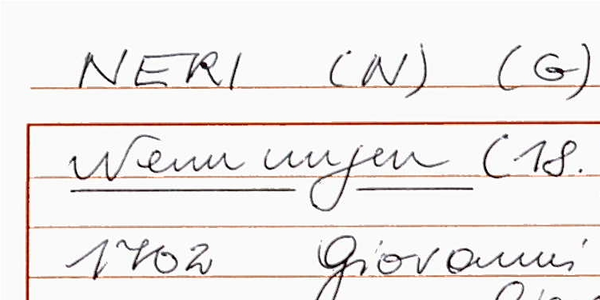 NERI (N) (G)
Nennungen (18.
1702 Giovanni